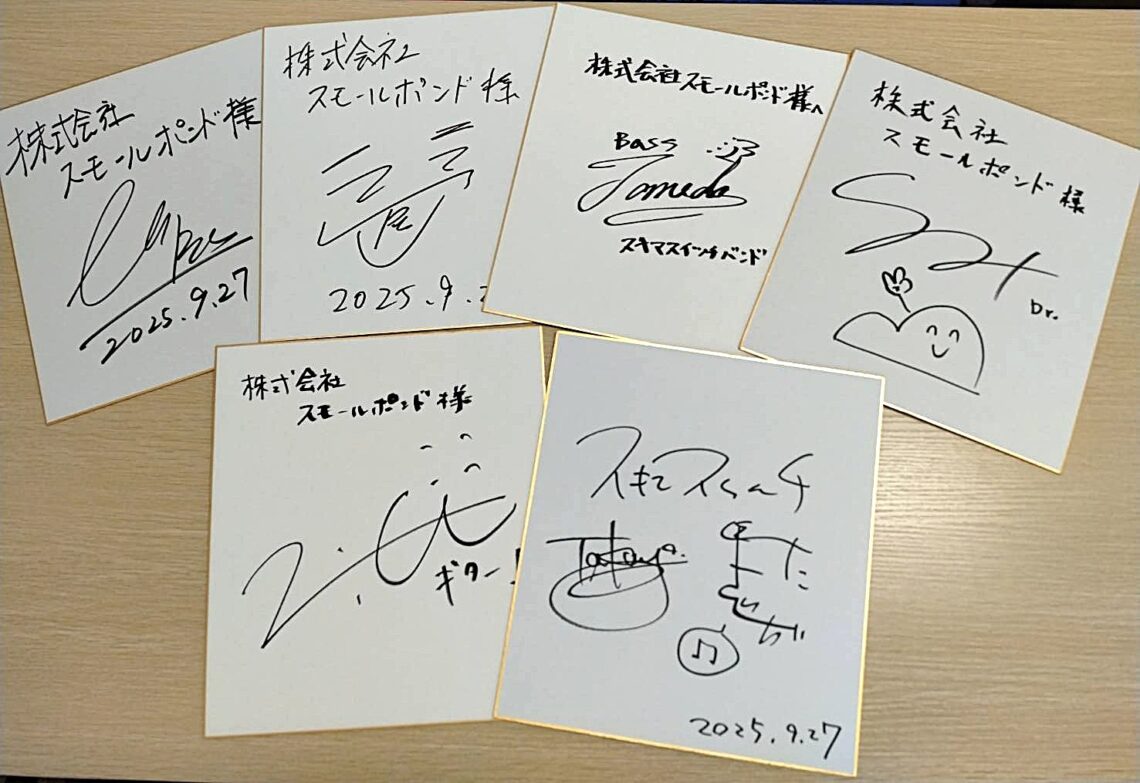 株式会社
スモールポンド様
2025.9.27
株式会社
スモールポンド様
2025.9.2
株式会社スモールポンド様へ
Bass
スキマスイッチバンド
株式会社
スモールポンド様
Dr.
株式会社
スモールポンド様
ギター!
スキマスイッチ
Takuya.
2025.9.27